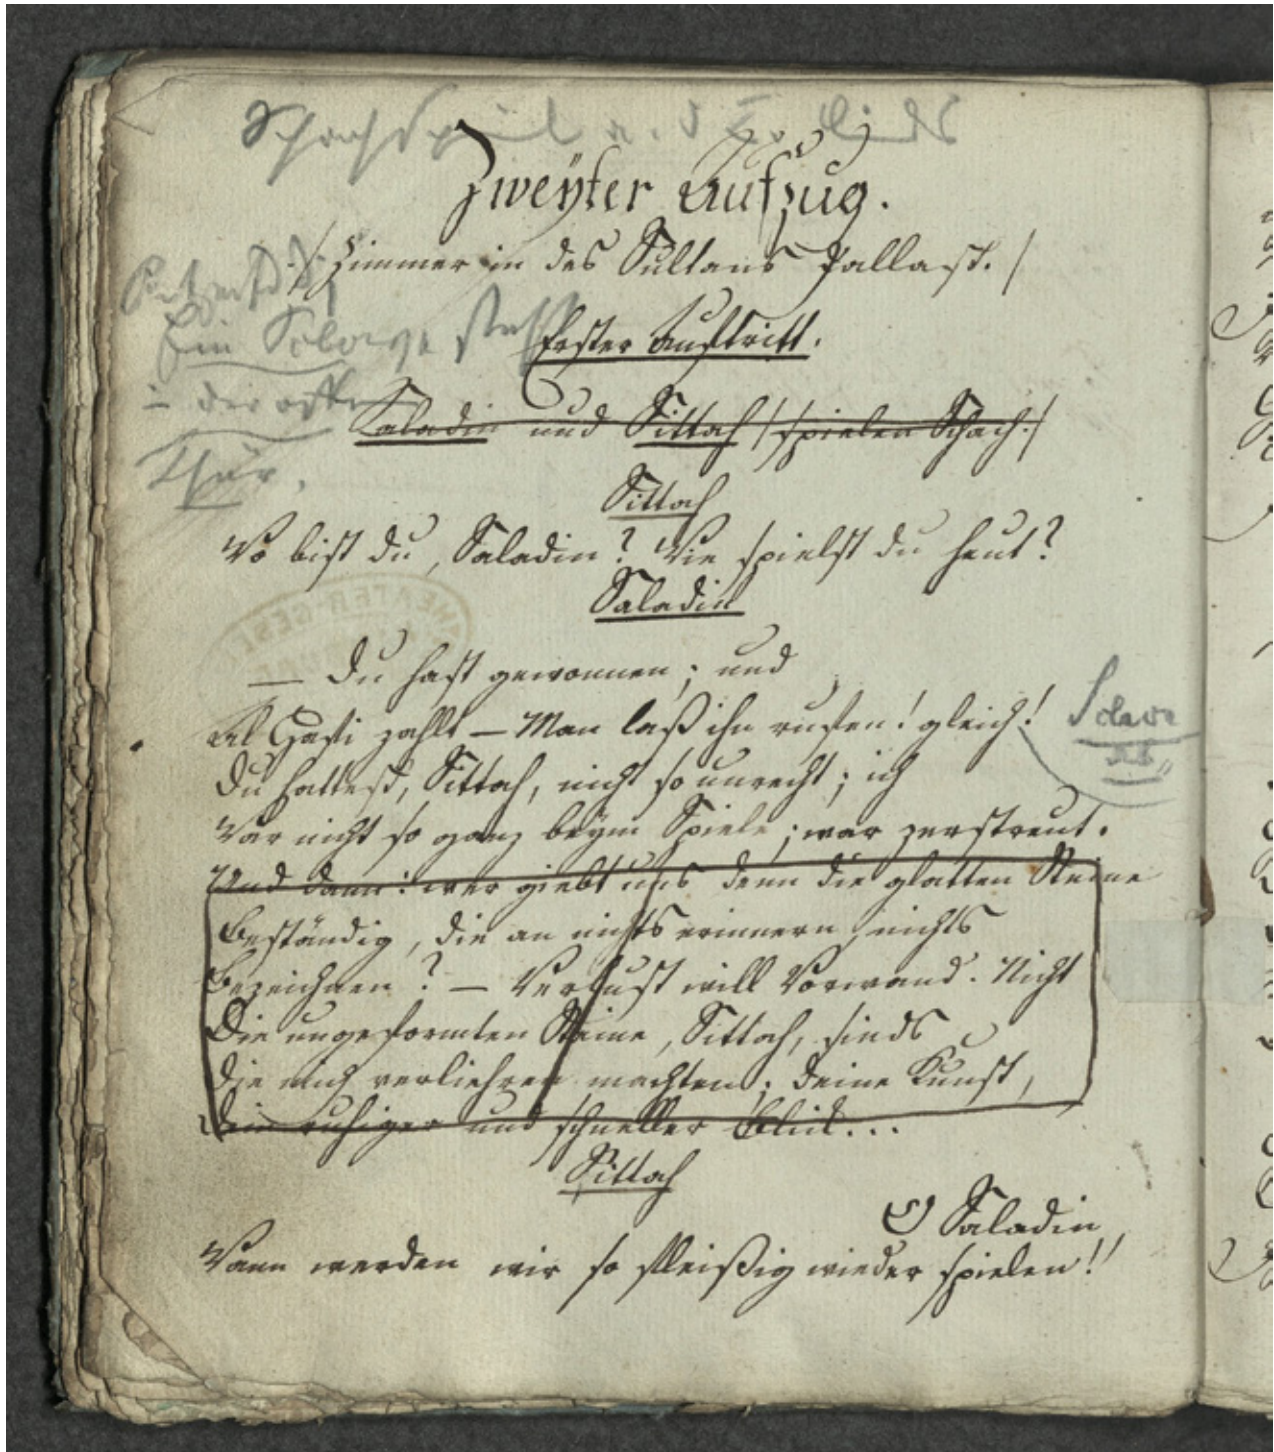 Schachspiel
Zweyter Aufzug.
/ Zimmer in des Sultans Pallast. /
Ein Sclave steht
Erster Auftritt.
in der offenen
Saladin und Sittah / spielen Schach. /
Thür.
Sittah
Wo bist du, Saladin? Wie spielst du heut?
Saladin
— Du hast gewonnen; und
Al Hafi zahlt — Man laß ihn rufen! gleich!
Sclave
ab
Du hattest, Sittah, nicht so unrecht; ich
War nicht so ganz beym Spiele; war zerstreut.
Und dann: wer giebt uns denn die glatten Steine
Beständig, die an nichts erinnern, nichts
Bezeichnen? — Verlust will Vorwand. Nicht
Die ungeformten Steine, Sittah, sinds
Die mich verliehren machten; deine Kunst,
Dein ruhiger und schneller Blick...
Sittah
O Saladin,
Wann werden wir so fleißig wieder spielen!